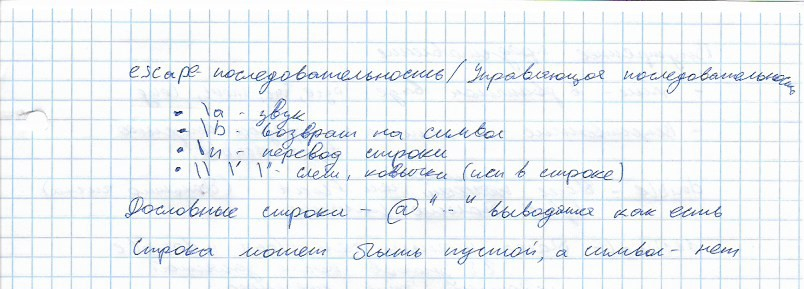 escape-последовательность/Управляющая последовательность
• \a - звук
• \b - возврат на символ
• \n - перевод строки
• \\ \' \" - слеш, кавычки (исп в строке)
Дословные строки - @"..." выводятся как есть
Строка может быть пустой, а символ - нет